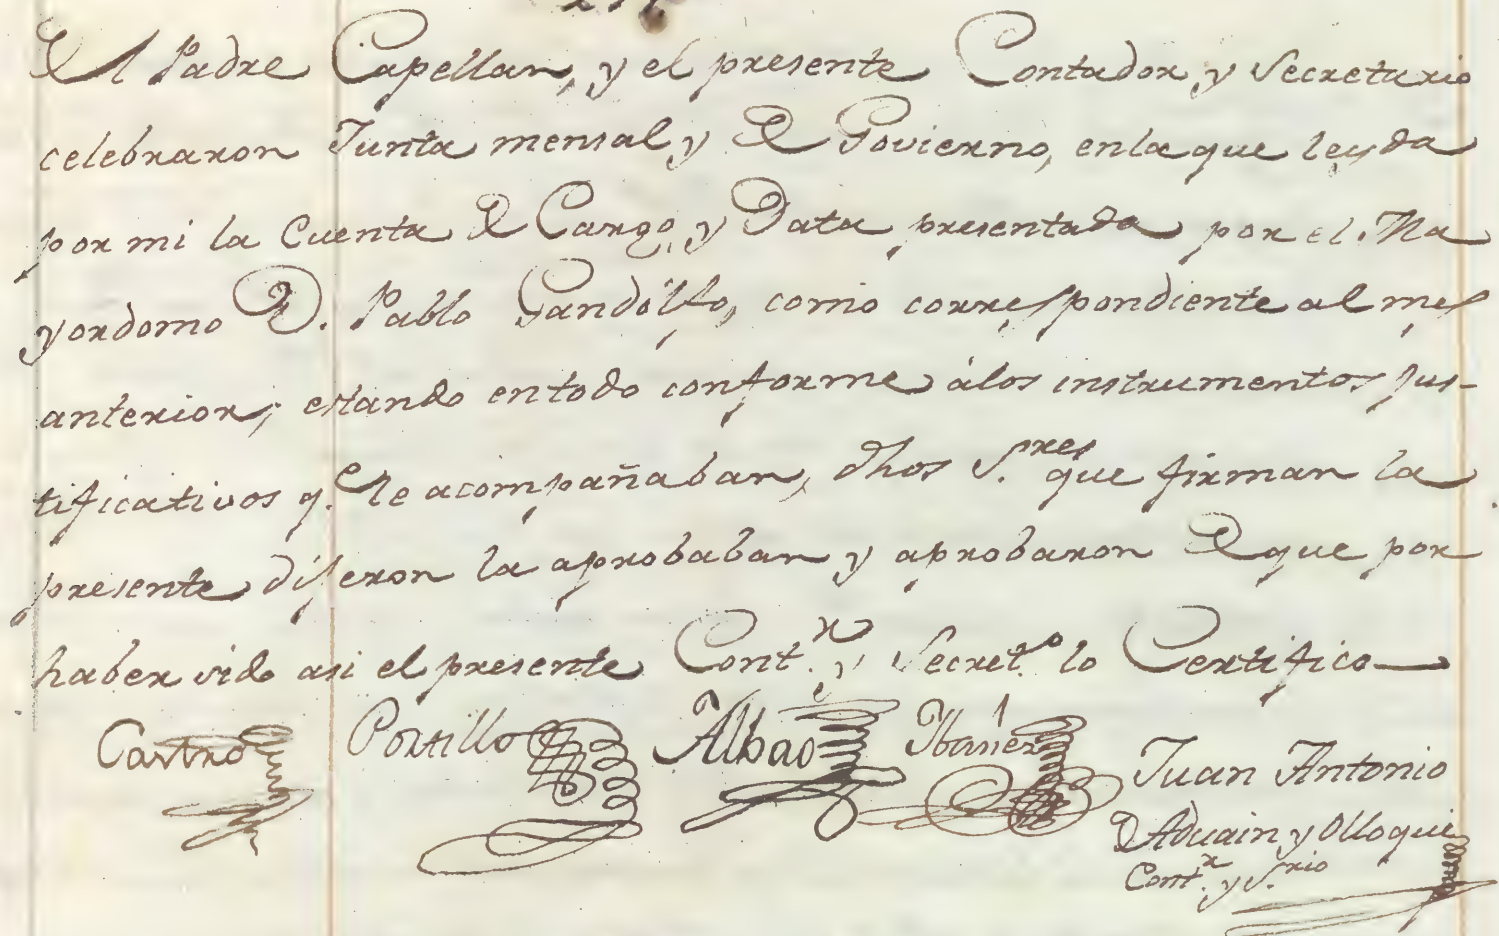 El Padre Capellan, y el presente Contador y Secretario
celebraron Junta mensal y de Govierno, enla que leyda
por mi la Cuenta de Cargo, y Data presentada por el Ma
yordomo D. Pablo Gandolfo, como correspondiente al mes
anterior; estando entodo conforme álos instrumentos jus-
tificativos q.e le acompañaban, dhos S.res que firman la
presente dijeron la aprobaban y aprobaron de que por
haber sido asi el presente Cont.r y Secret.o lo Certifico
Castro Portillo Albao Ibáñez
Juan Antonio
de Aduain y Olloqui
Cont.r y S.rio